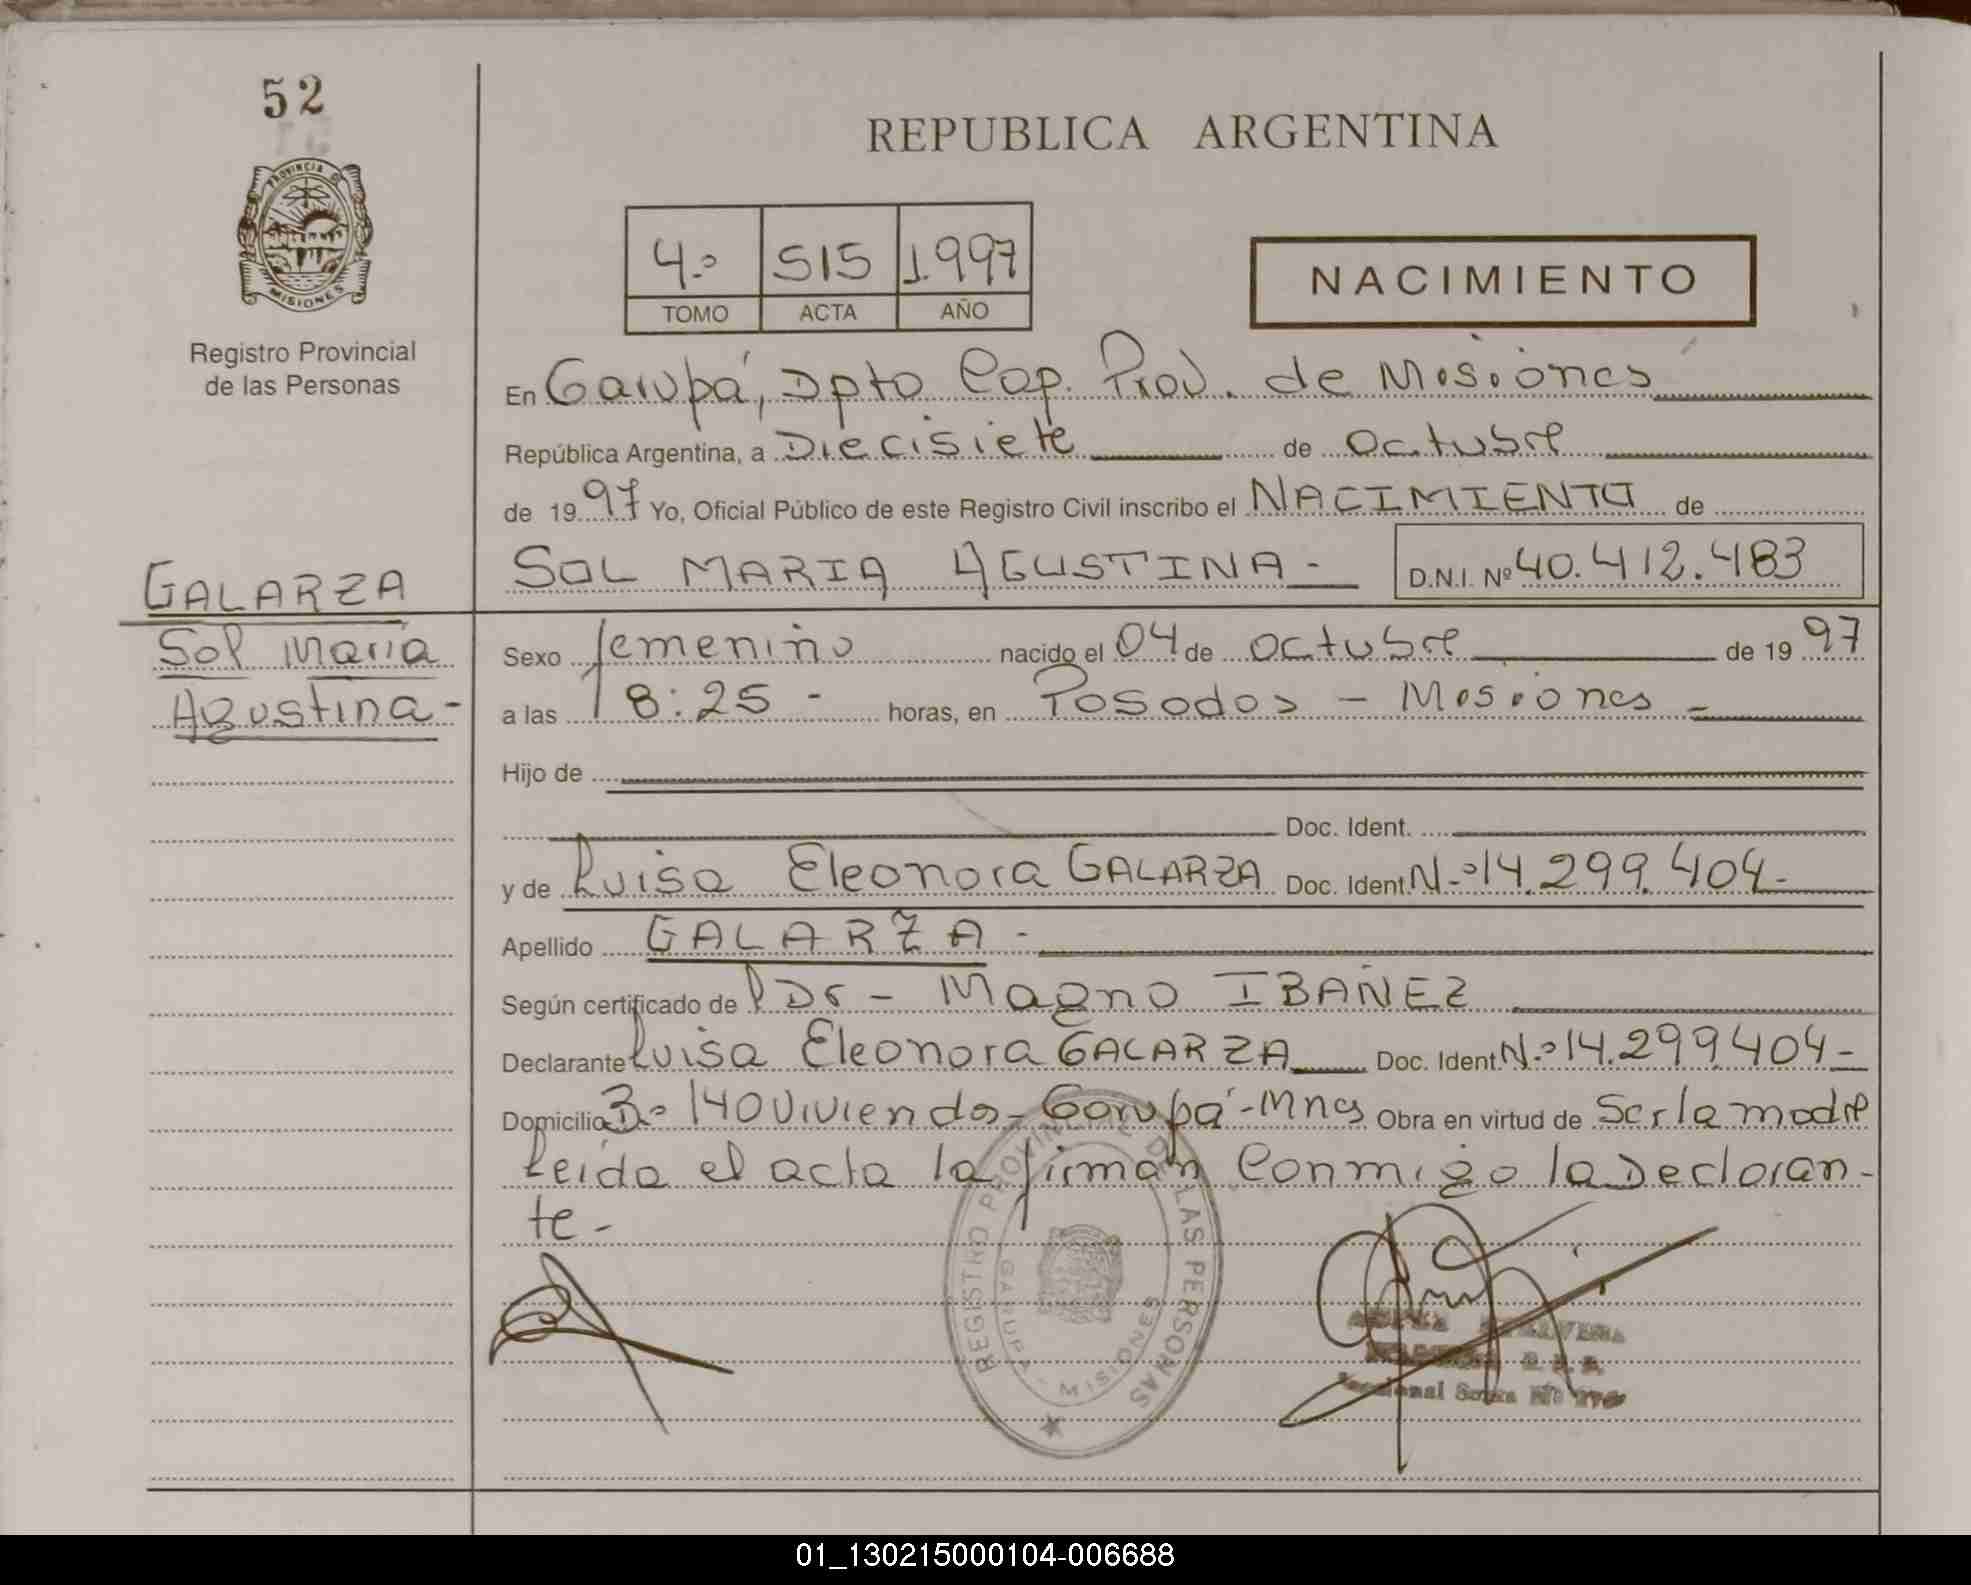 52
PROVINCIA D
MISIONES
Registro Provincial
de las Personas
GALARZA
Sol Maria
Agustina-
REPUBLICA ARGENTINA
4.º 515 1.997
TOMO ACTA AÑO
NACIMIENTO
En Garupá, Dpto Cap. Prov. de Misiones
República Argentina, a Diecisiete de octubre
de 1997 Yo, Oficial Público de este Registro Civil inscribo el NACIMIENTO de
SOL MARIA AGUSTINA - D.N.I. Nº 40.412.483
Sexo femenino nacido el 04 de octubre de 1997
a las 18:25 - horas, en Posadas - Misiones -
Hijo de
Doc. Ident.
y de Luisa Eleonora GALARZA Doc. Ident N.º 14.299.404-
Apellido GALARZA -
Según certificado de Dr - Magno IBAÑEZ
Declarante Luisa Eleonora GALARZA Doc. Ident N.º 14.299.404-
Domicilio Bº 140 Viviendas - Garupá - Mnes Obra en virtud de Ser la madre
Leída el acta la firman Conmigo la Declaran-
te-
REGISTRO PROVINCIAL DE LAS PERSONAS
GARUPA - MISIONES
01_130215000104-006688